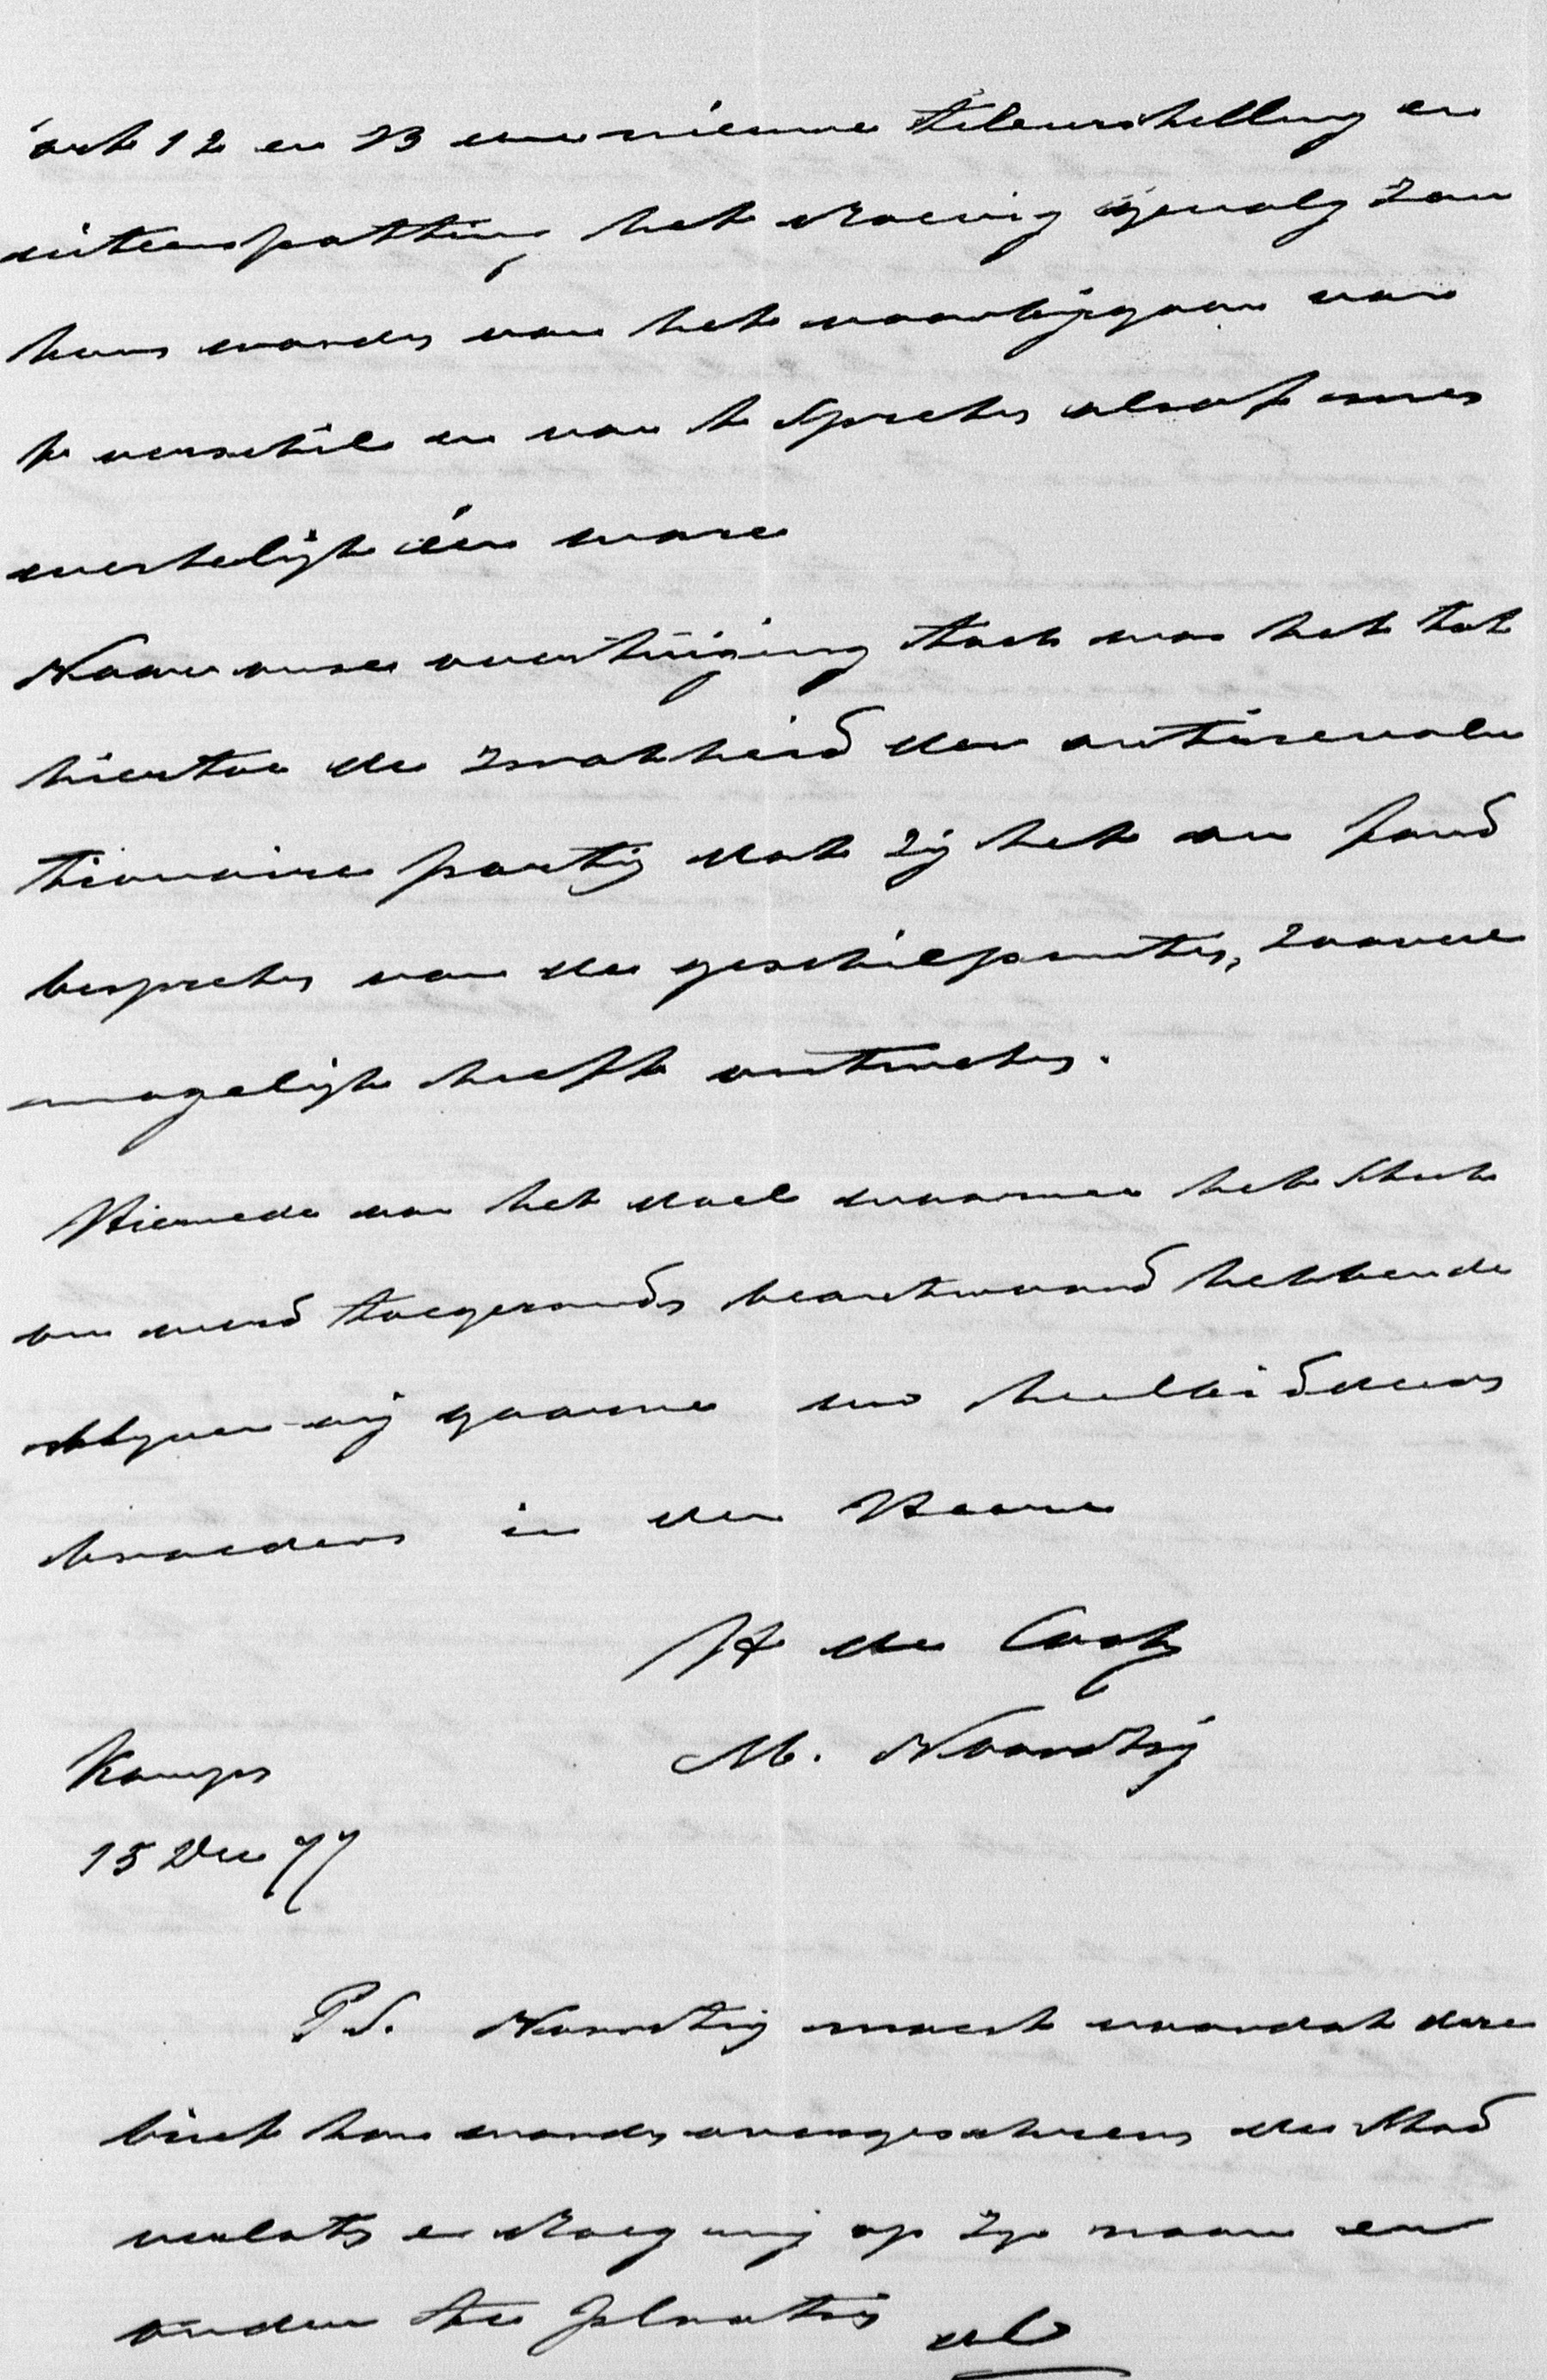 art 12 en 23 eene nieuwe teleurstelling en
uiteenspatting het droevig gevolg zou
kunnen worden van het voorbijgaan van
't verschil en van te spreken alsof men
werkelijk één ware
Naar onze overtuiging toch was het tot
hiertoe de zwakheid der antirevolu
tionaire partij dat zij het au fond
bespreken van de geschilpunten, zooveel
mogelijk heeft ontweken.
Hiermede aan het doel waarmee het stuk
ons werd toegezonden beantwoord hebbende
blijven wij gaarne uw heilbiddende
broeders in den Heere
H de Cock
M. Noordtzij
Kampen
15 Dec 77
P.S. Noordtzij moest voordat deze
brief kon worden overgeschreven de stad
verlaten en droeg mij op zijn naam er
onder te plaatsen